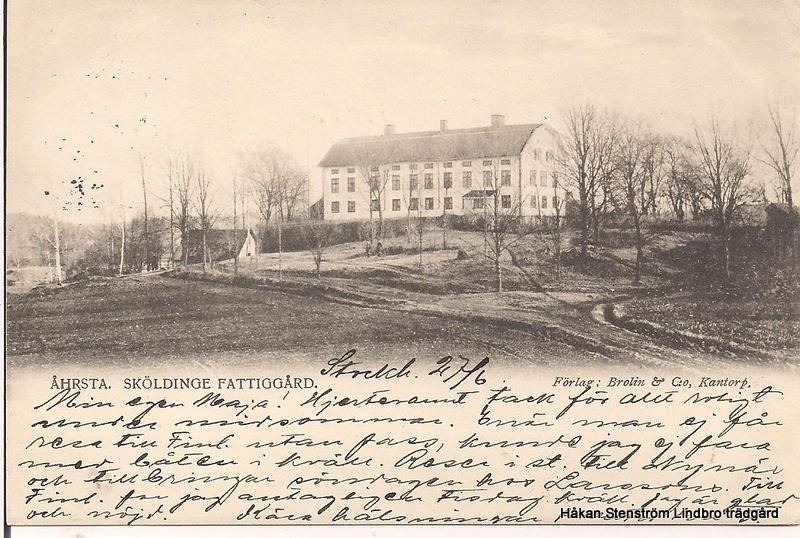 ÅHRSTA. SKÖLDINGE FATTIGGÅRD.
Stockh. 27/6
Förlag: Brolin & C:o, Kantorp.
Min egen Maja! Hjerteramt tack för allt roligt
under midsommar. Enär man ej får
resa till Finl. utan pass, kunde jag ej fara
med båten i kväll. Reser i st. till Nynäs
och tillbringar söndagen hos Larssons. Till
Finl. far jag antagligen tisdag kväll. Jag är glad
och nöjd. Kära hälsningar
Håkan Stenström Lindbro trädgård